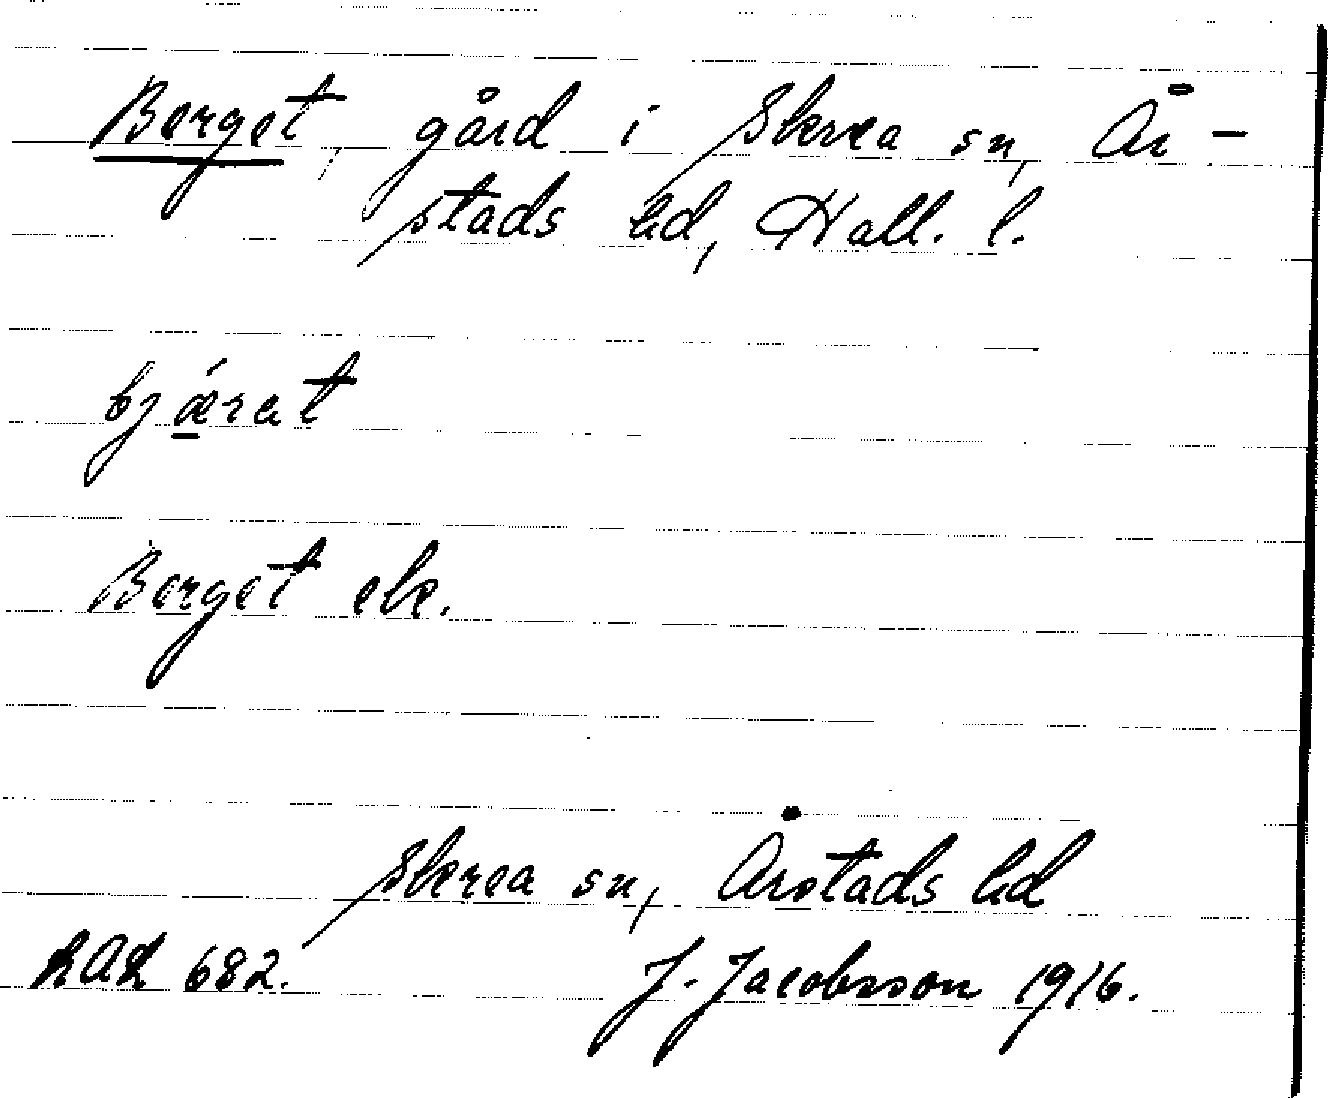 Berget, gård i Skrea sn, År-
stads hd, Hall. l.
bjǽrat
Berget ek.
Skrea sn, Årstads hd
682. J. Jacobsson 1916.